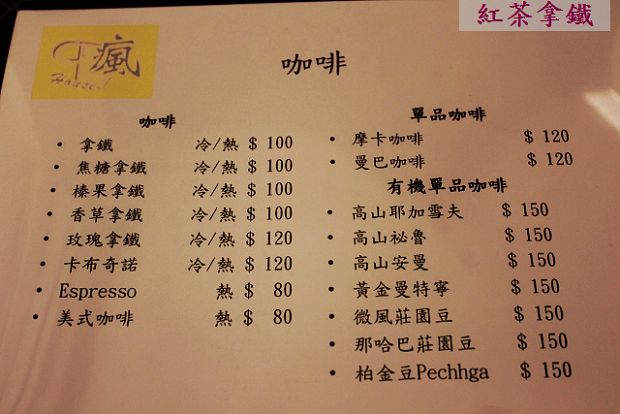 紅茶拿鐵
瘋
House!
咖啡
咖啡
• 拿鐵 冷/熱 $ 100
• 焦糖拿鐵 冷/熱 $ 100
• 榛果拿鐵 冷/熱 $ 100
• 香草拿鐵 冷/熱 $ 100
• 玫瑰拿鐵 冷/熱 $ 120
• 卡布奇諾 冷/熱 $ 120
• Espresso 熱 $ 80
• 美式咖啡 熱 $ 80
單品咖啡
• 摩卡咖啡 $ 120
• 曼巴咖啡 $ 120
有機單品咖啡
• 高山耶加雪夫 $ 150
• 高山祕魯 $ 150
• 高山安曼 $ 150
• 黃金曼特寧 $ 150
• 微風莊園豆 $ 150
• 那哈巴莊園豆 $ 150
• 柏金豆Pechhga $ 150